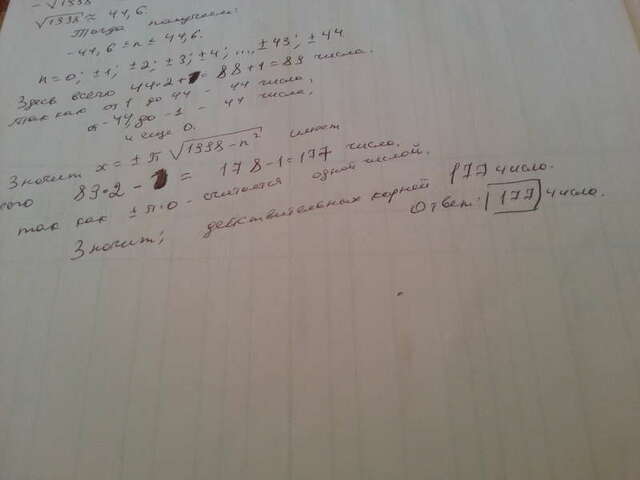 - √1338
√1338 ≈ 44,6.
Тогда получаем:
-44,6 ≤ n ≤ 44,6.
n = 0; ±1; ±2; ±3; ±4; ..., ±43; ±44
Здесь всего 44·2+1 = 88+1 = 89 числа.
так как от 1 до 44 - 44 числа,
от -44 до -1 - 44 числа,
и еще 0.
Значит x = ± π √1998-n² имеет
его 89·2 - 1 = 178-1 = 177 число.
так как ± π·0 - считается одной числой.
Значит, действительных корней 177 число.
Ответ: 177 число.